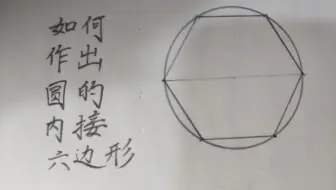 如何
作出
圆的
内接
六边形